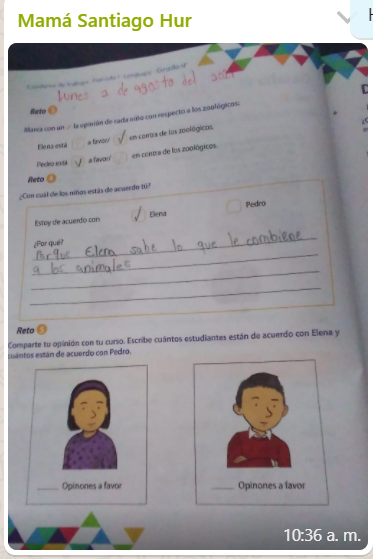 Mamá Santiago Hur
lunes 2 de agosto del
Reto
Marca con un la opinión de cada niño con respecto a los zoológicos:
Elena está a favor/ en contra de los zoológicos.
Pedro está a favor/ en contra de los zoológicos.
Reto
¿Con cuál de los niños estás de acuerdo tú?
Estoy de acuerdo con Elena Pedro
¿Por qué?
Porque Elena sabe lo que le combiene
a los animales
Reto
Comparte tu opinión con tu curso. Escribe cuántos estudiantes están de acuerdo con Elena y
cuántos están de acuerdo con Pedro.
Opinones a favor Opinones a favor
10:36 a. m.